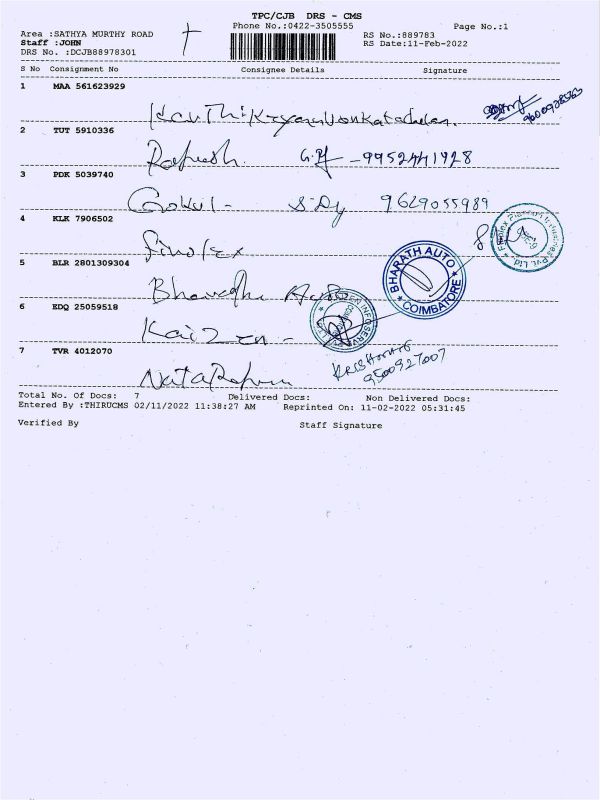 TPC/CJB DRS - CMS
Phone No.:0422-3505555
Page No.:1
Area :SATHYA MURTHY ROAD
RS No.:889783
Staff :JOHN
RS Date:11-Feb-2022
DRS No. :DCJB88978301
S No Consignment No Consignee Details Signature
1 MAA 561623929
2 TUT 5910336
Rajesh - 9952441928
3 PDK 5039740
Gokul - 9629055989
4 KLK 7906502
Finolex
5 BLR 2801309304
BHARATH AUTO
COIMBATORE
6 EDQ 25059518
Kaizen -
7 TVR 4012070
9500927007
Total No. Of Docs: 7 Delivered Docs: Non Delivered Docs:
Entered By :THIRUCMS 02/11/2022 11:38:27 AM Reprinted On: 11-02-2022 05:31:45
Verified By Staff Signature